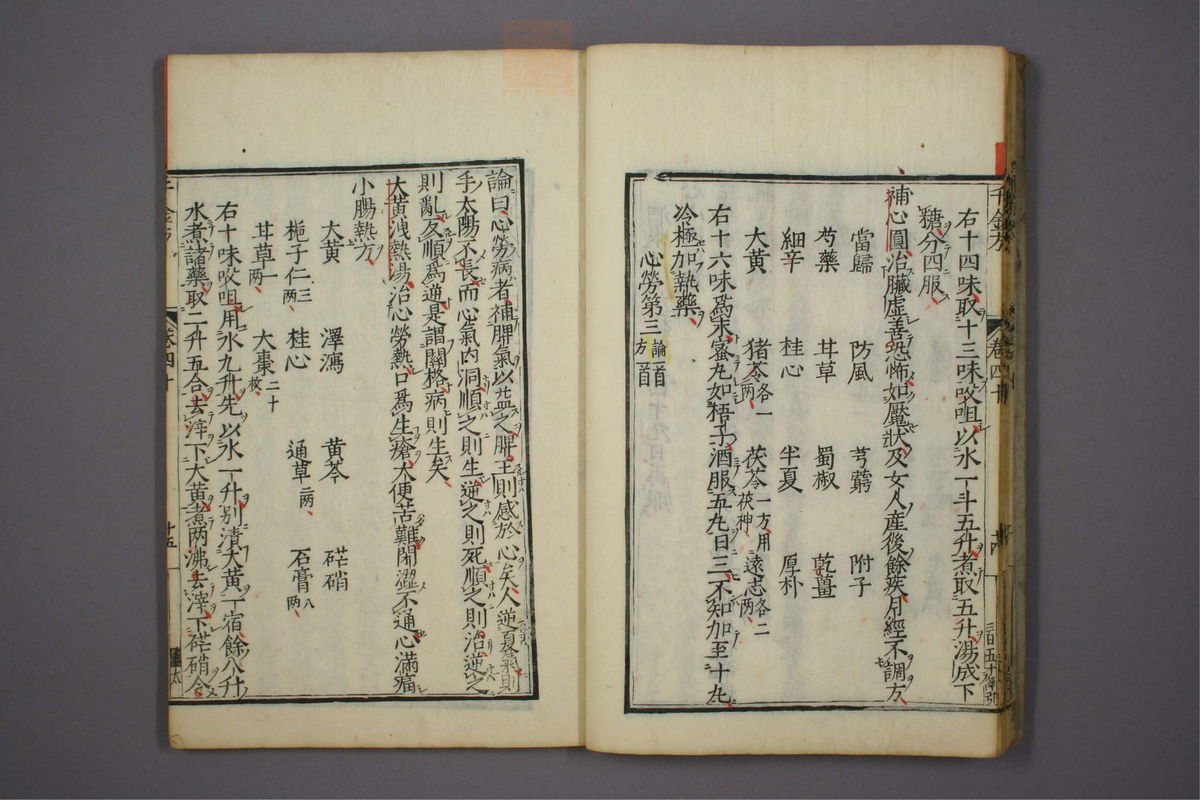 右十四味取十三味㕮咀以水一斗五升煮取五升湯成下
糖分四服
補心圓治臟虛善恐怖如魘狀及女人產後餘疾月經不調方
當歸 防風 芎藭 附子
芍藥 甘草 蜀椒 乾薑
細辛 桂心 半夏 厚朴
大黃 猪苓各一兩 茯苓一方用茯神 遠志各二兩
右十六味爲末蜜丸如梧子酒服五丸日三不知加至十丸
冷極加熱藥
心勞第三 論一首 方一首
論曰心勞病者補脾氣以益之脾王則感於心矣人逆夏氣則
手太陽不長而心氣內洞順之則生逆之則死順之則治逆之
則亂反順爲逆是謂關格病則生矣
大黃洩熱湯治心勞熱口爲生瘡大便苦難閉澀不通心滿痛
小腸熱方
大黃 澤瀉 黃芩 芒硝
梔子仁三兩 桂心 通草二兩 石膏八兩
甘草一兩 大棗二十枚
右十味㕮咀用水九升先以水一升別漬大黃一宿餘八升
水煮諸藥取二升五合去滓下大黃煮兩沸去滓下芒硝令
千金方 卷四十 十五